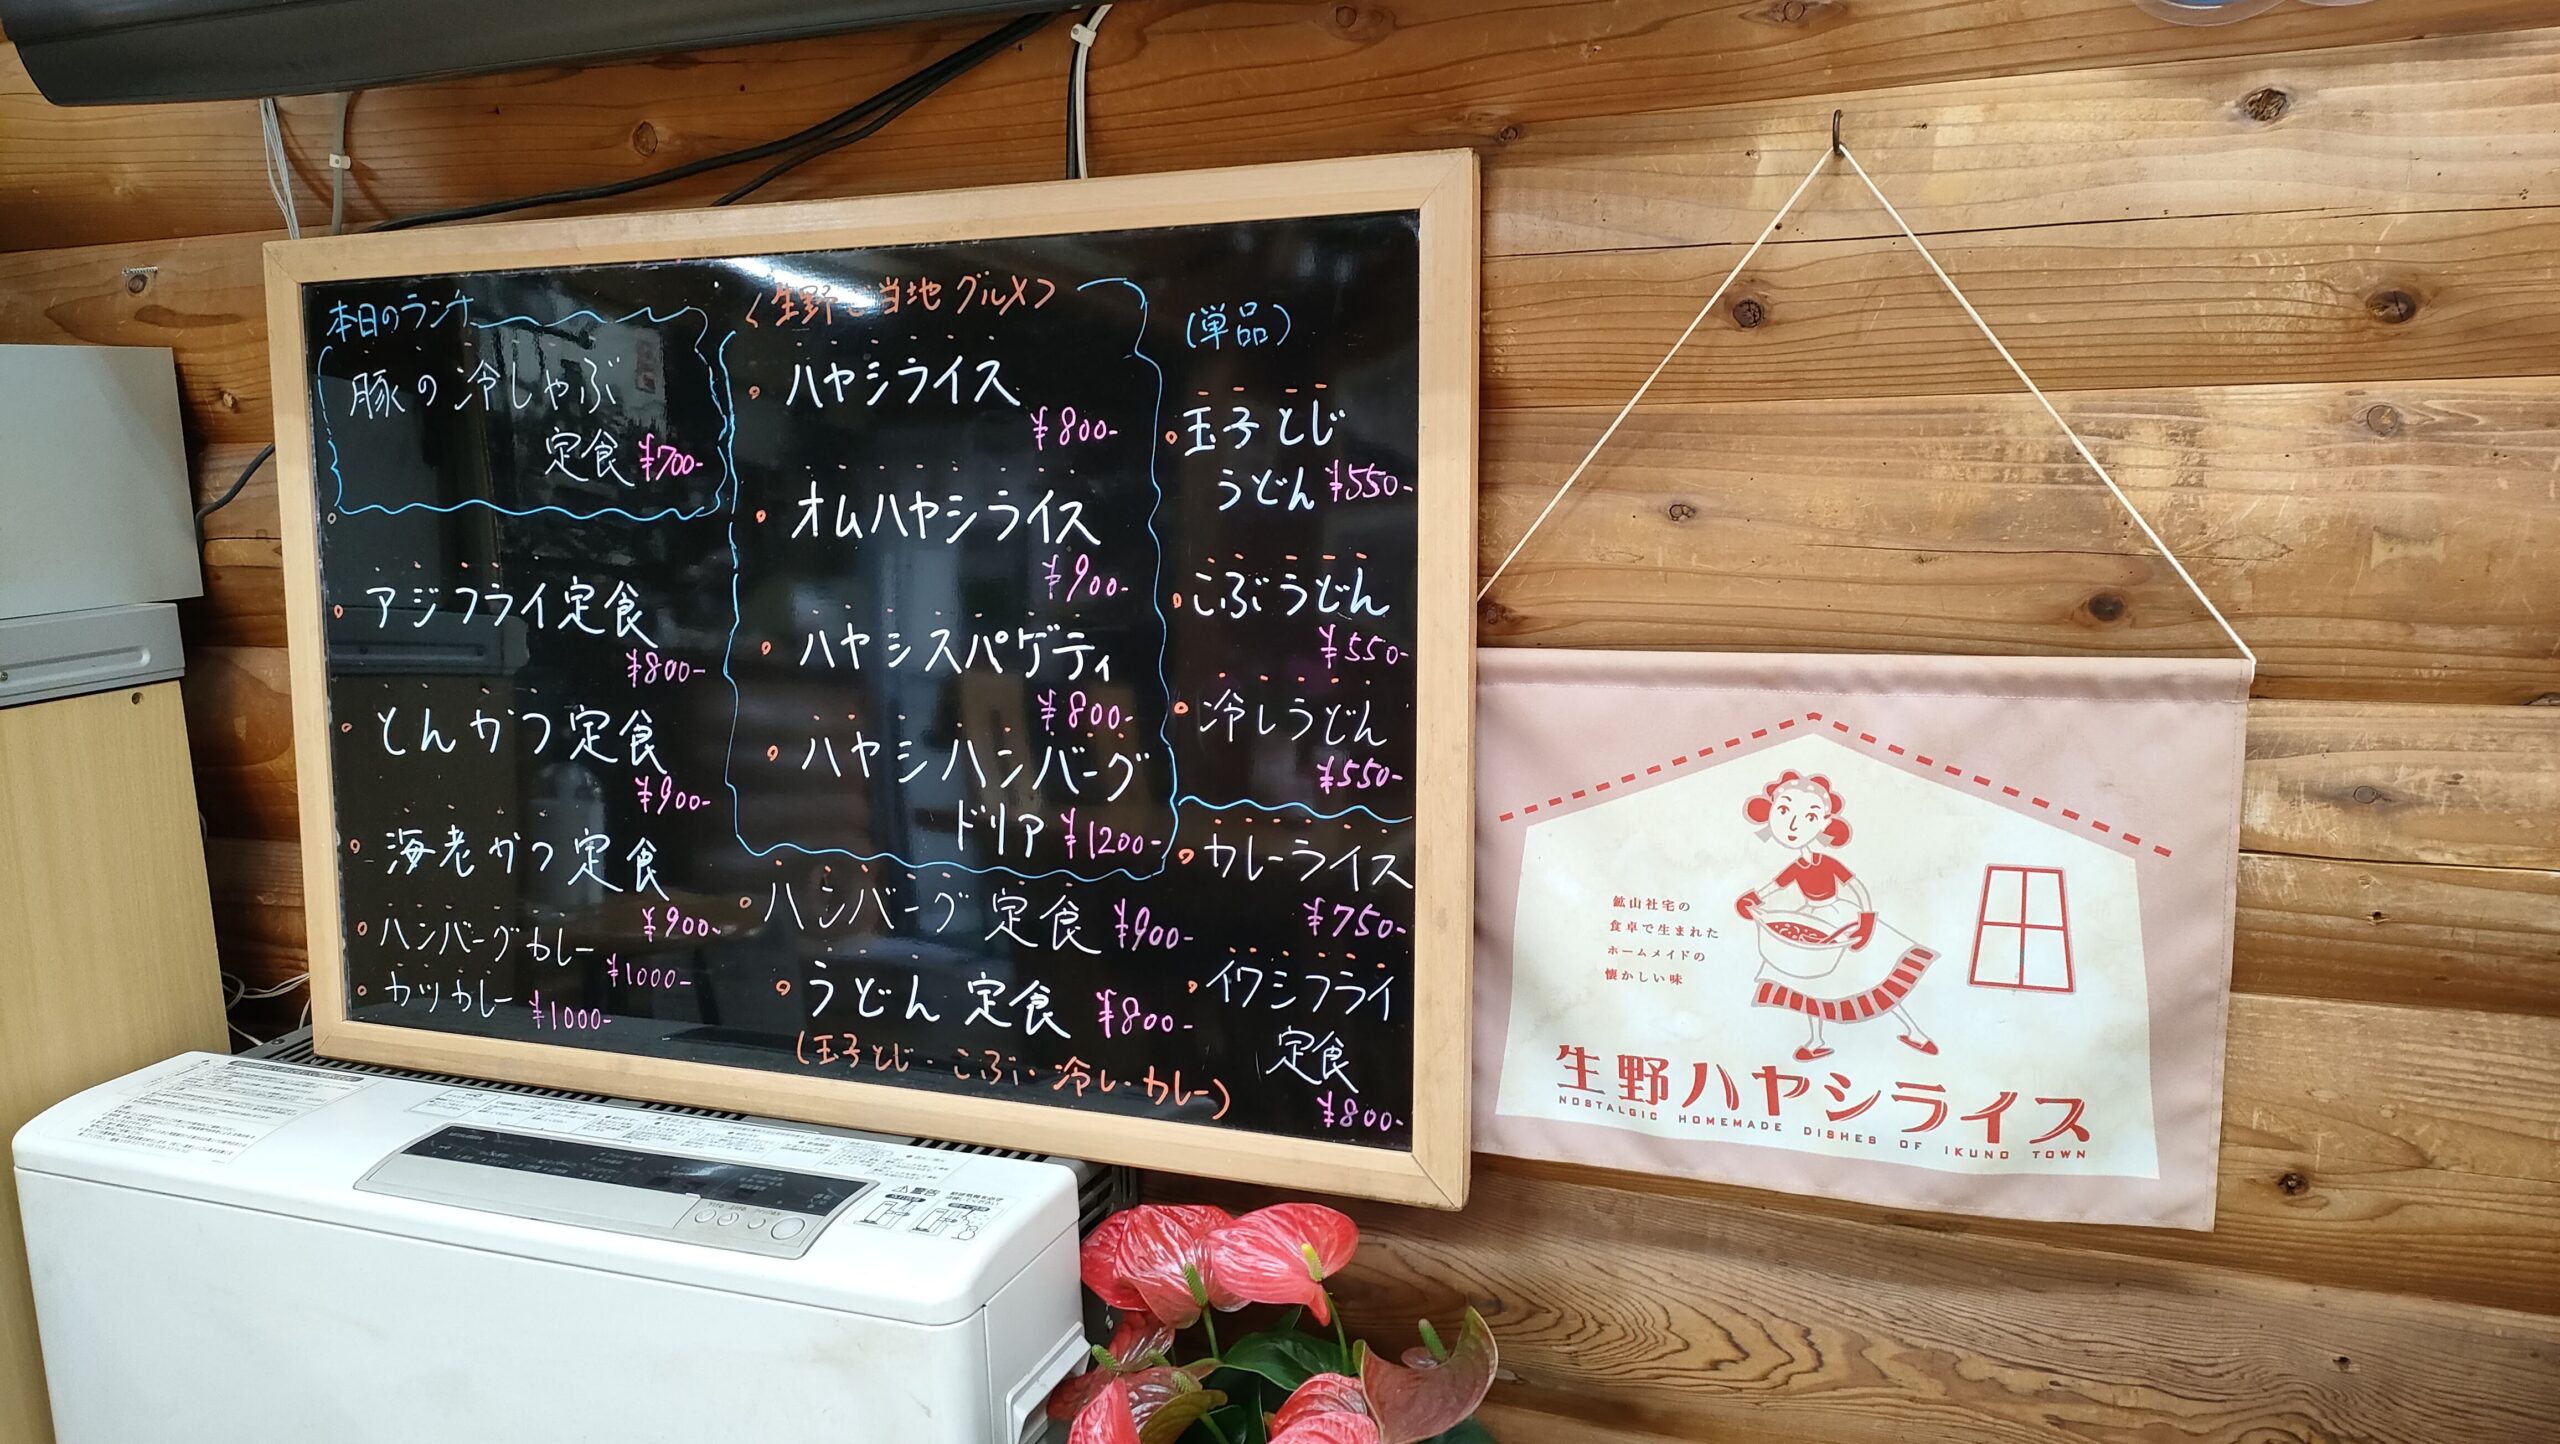 本日のランチ
豚の冷しゃぶ
定食 ¥700-
アジフライ定食
¥800-
とんかつ定食
¥900-
海老かつ定食
¥900-
ハンバーグカレー
¥1000-
カツカレー ¥1000-
<生野ご当地グルメ>
ハヤシライス
¥800-
オムハヤシライス
¥900-
ハヤシスパゲティ
¥800-
ハヤシハンバーグ
ドリア ¥1200-
ハンバーグ定食 ¥900-
うどん定食 ¥800-
(玉子とじ・こぶ・冷し・カレー)
(単品)
玉子とじ
うどん ¥550-
こぶうどん
¥550-
冷しうどん
¥550-
カレーライス
¥750-
イワシフライ
定食
¥800-
鉱山社宅の
食卓で生まれた
ホームメイドの
懐かしい味
生野ハヤシライス
NOSTALGIC HOMEMADE DISHES OF IKUNO TOWN
警告